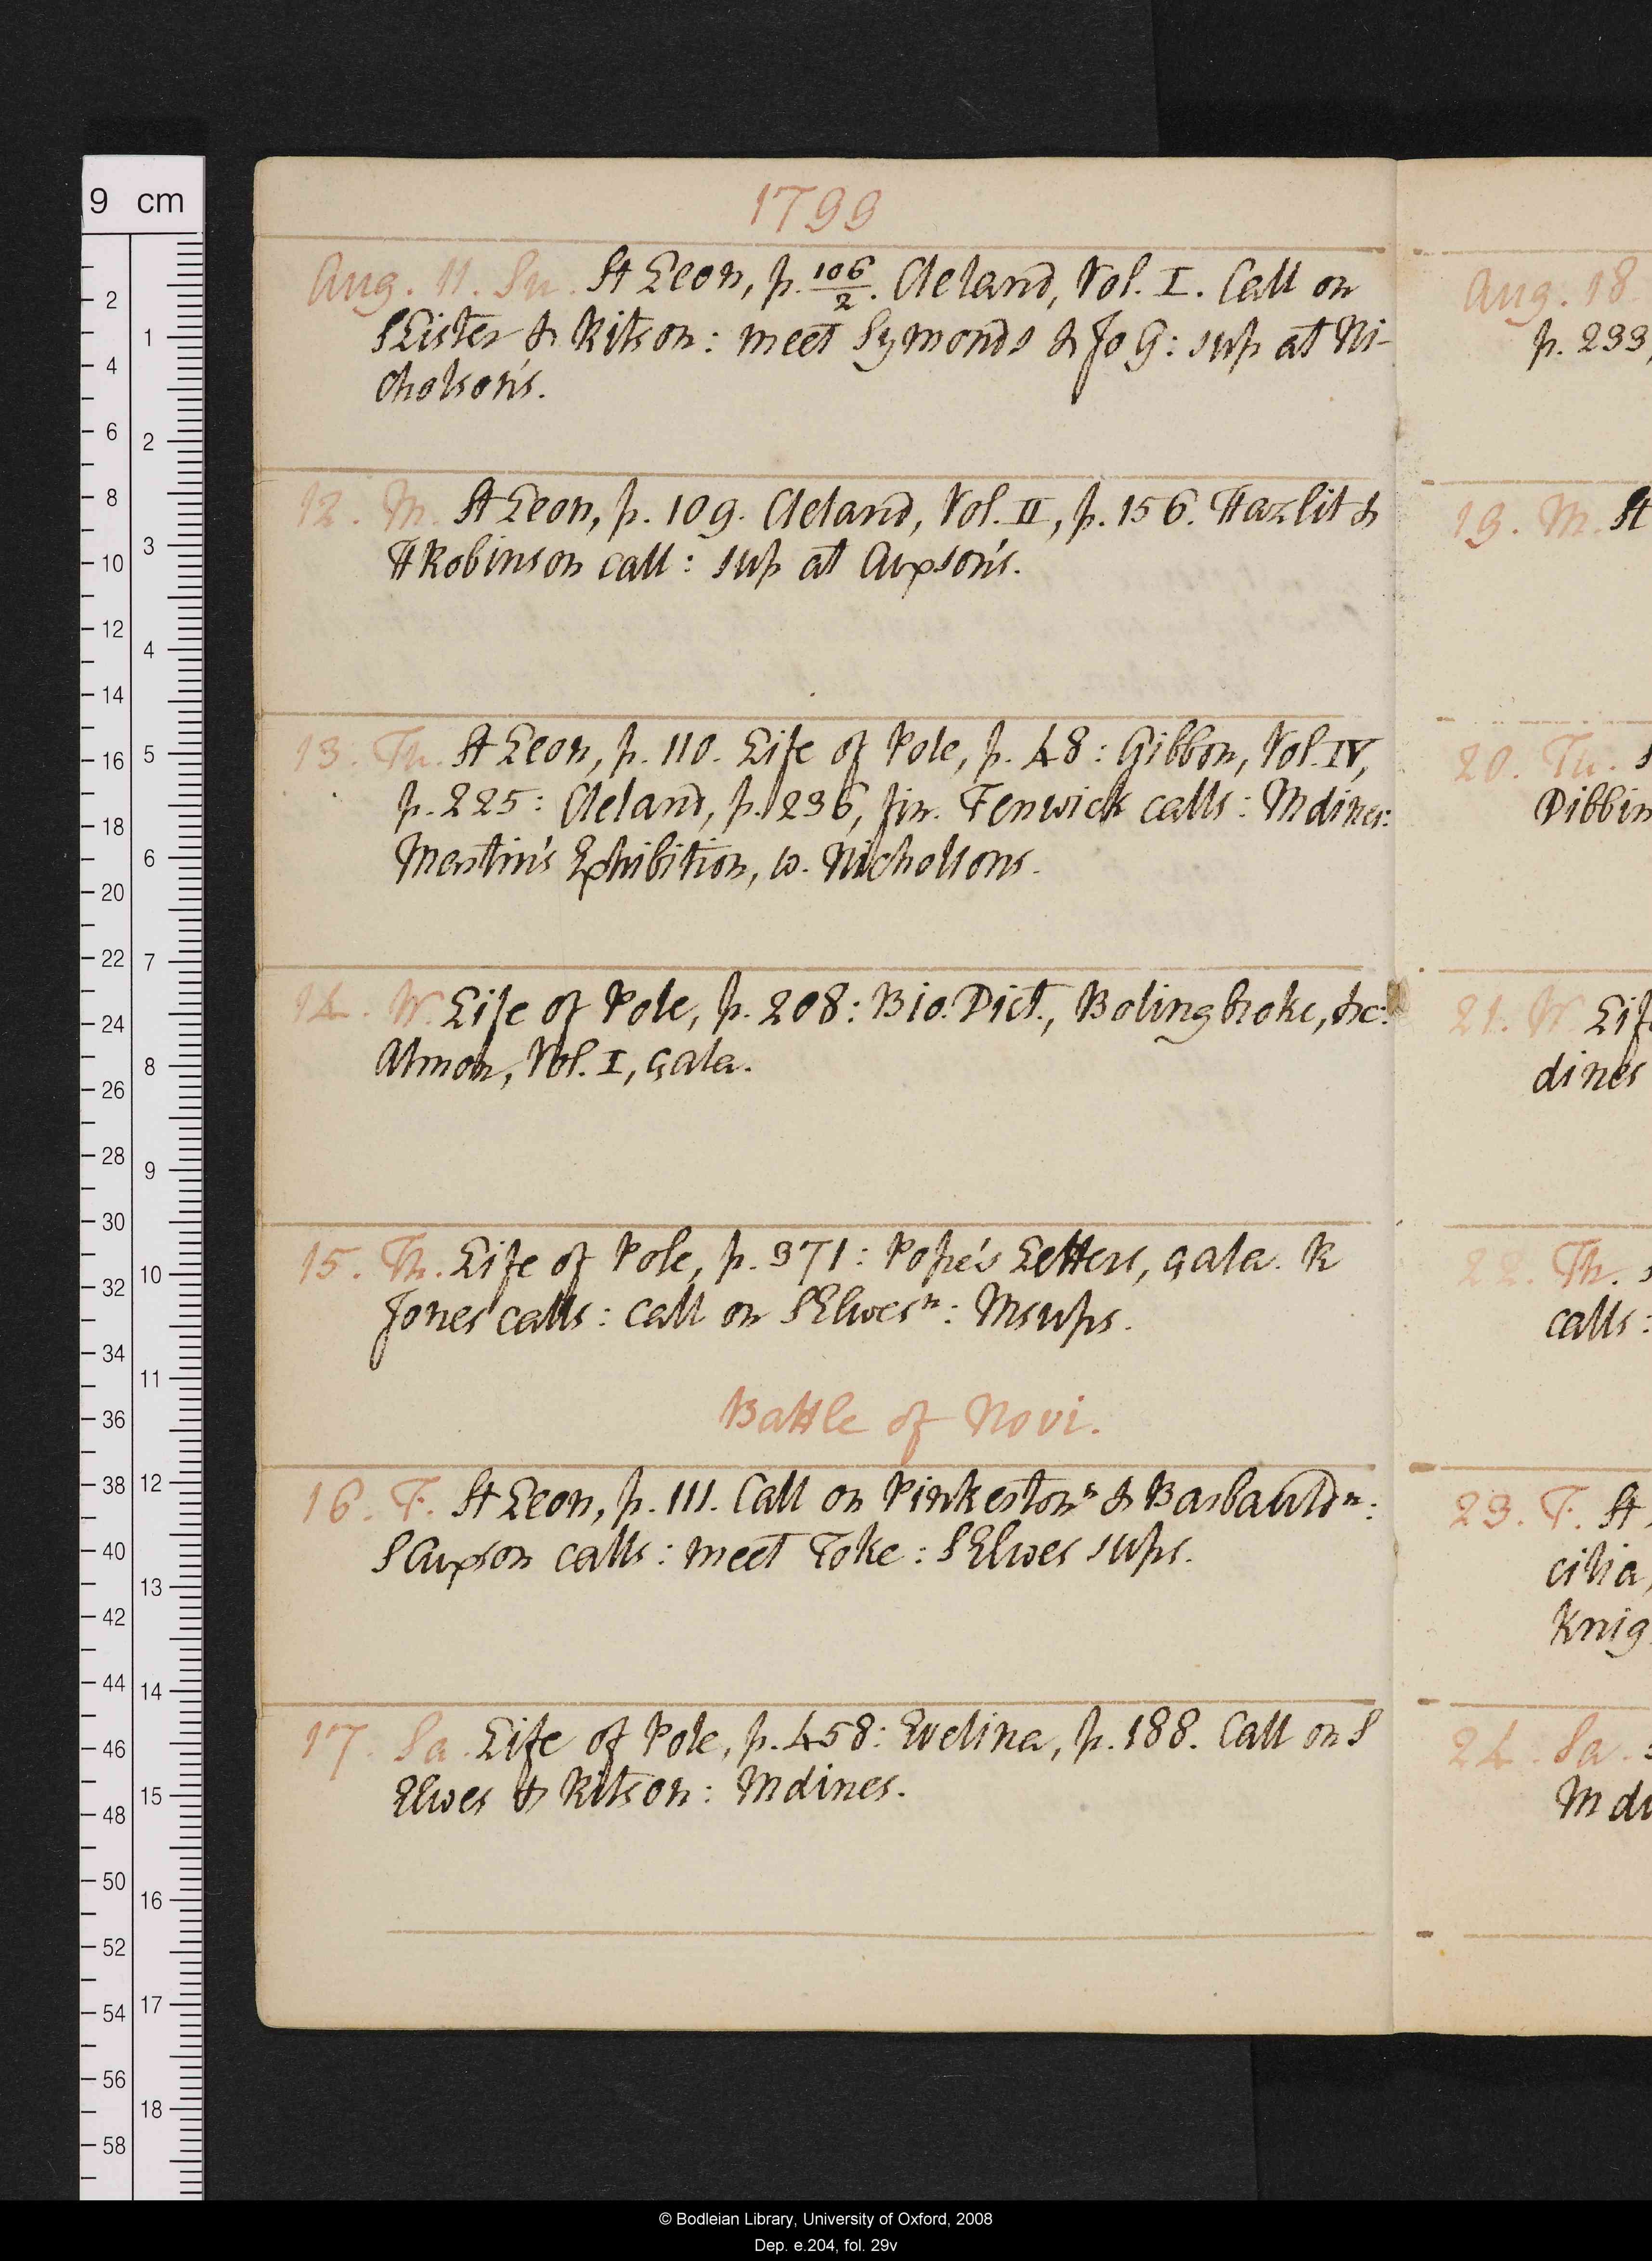 1799
Aug. 11. Su. St Leon, p. 106/2. Cleland, Vol. I. Call on
S Lister & Ritson: meet Symonds & Jo G: sup at Ni-
cholson's.
12. M. St Leon, p. 109. Cleland, Vol. II, p. 156. Hazlit &
H Robinson call: sup at Claxson's.
13. Tu. St Leon, p. 110. Life of Pole, p. 48: Gibbon, Vol. IV,
p. 225: Cleland, p. 236, fin. Fenwick calls: M dines:
Merlin's Exhibition, w. Nicholsons.
14. W. Life of Pole, p. 208: Bio. Dict., Bolingbroke, &c:
Almon, Vol. I, çala.
15. Th. Life of Pole, p. 371: Pope's Letters, çala. R
Jones calls: call on S Elwes ⁿ: M sups.
Battle of Novi.
16. F. St Leon, p. 111. Call on Pinkerton ⁿ & Barbauld ⁿ:
calls: meet Toke: S Elwes sups.
17. Sa. Life of Pole, p. 458: Evelina, p. 188. Call on S
Elwes & Ritson: M dines.
Aug. 18
p. 233,
19. M. St
20. Tu. S
Dibbin
21. W. Life
dines
22. Th. S
calls:
23. F. St
cilia,
Knig
24. Sa.
M di
9 cm
2
4
6
8
10
12
14
16
18
20
22
24
26
28
30
32
34
36
38
40
42
44
46
48
50
52
54
56
58
1
2
3
4
5
6
7
8
9
10
11
12
13
14
15
16
17
18
© Bodleian Library, University of Oxford, 2008
Dep. e.204, fol. 29v